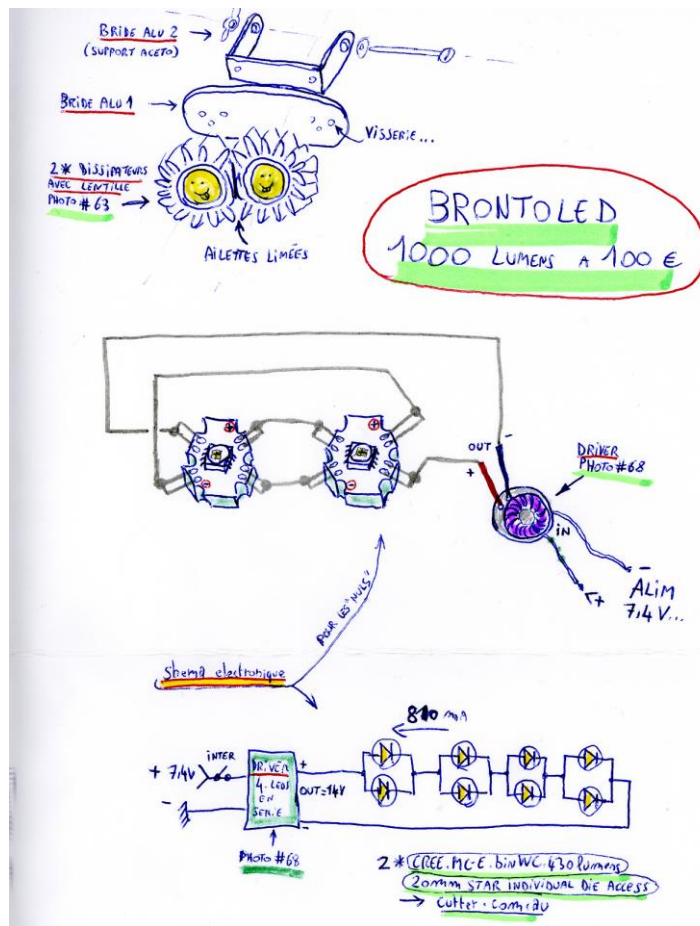 BRIDE ALU 2
(SUPPORT ACETO)
BRIDE ALU 1
VISSERIE...
2 * DISSIPATEURS
AVEC LENTILLE
PHOTO # 63
AILETTES LIMÉES
BRONTOLED
1000 LUMENS A 100 €
OUT
-
+
DRIVER
PHOTO #68
IN
-
+
ALIM
7,4 V...
+
-
+
-
POUR LES "NULS"
Shema electronique
810 mA
+ 7,4V
INTER
-
DRIVER
4 LEDS
EN
SERIE
+
OUT=14V
-
PHOTO #68
2 * CREE.MC-E.binWC.430 lumens
20mm STAR INDIVIDUAL DIE ACCESS
→ Cutter.com.au